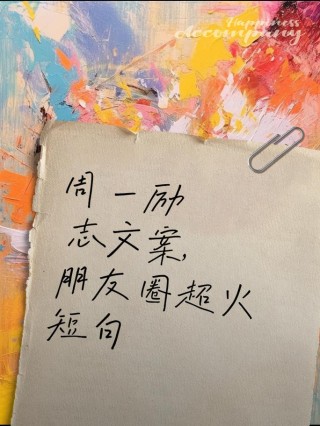 Happiness
accompany
周一励
志文案,
朋友圈超火
短句